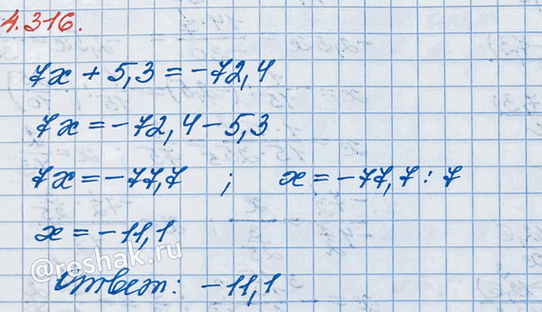 4.316.
7x + 5,3 = -72,4
7x = -72,4 - 5,3
7x = -77,7 ; x = -77,7 : 7
x = -11,1
@reshak.ru
Ответ: -11,1